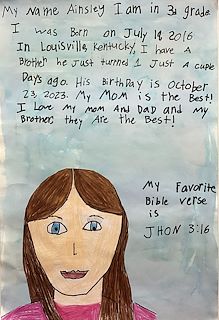 My Name Ainsley I am in 3rd grade.
I was Born on July 19, 2016
In Louisville, Kentucky, I have A
Brother he Just turned 1 Just A cuple
Days ago. His BirthDay is October
23, 2023. My MOM is the Best!
I Love My mom And Dad and My
Brother, they Are the Best!
My Favorite
Bible verse
is
JHON 3:16